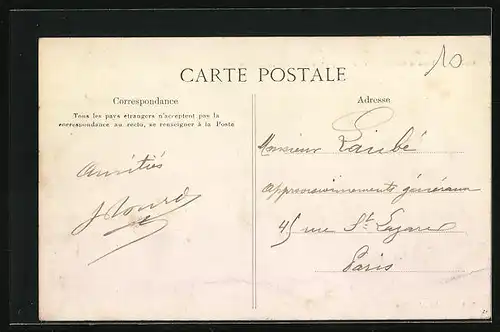 10
CARTE POSTALE
Correspondance
Tous les pays étrangers n'acceptent pas la
correspondance au recto, se renseigner à la Poste
Amitiés
Adresse
Monsieur Laibé
Approvisionnements généraux
45 rue St Lazare
Paris